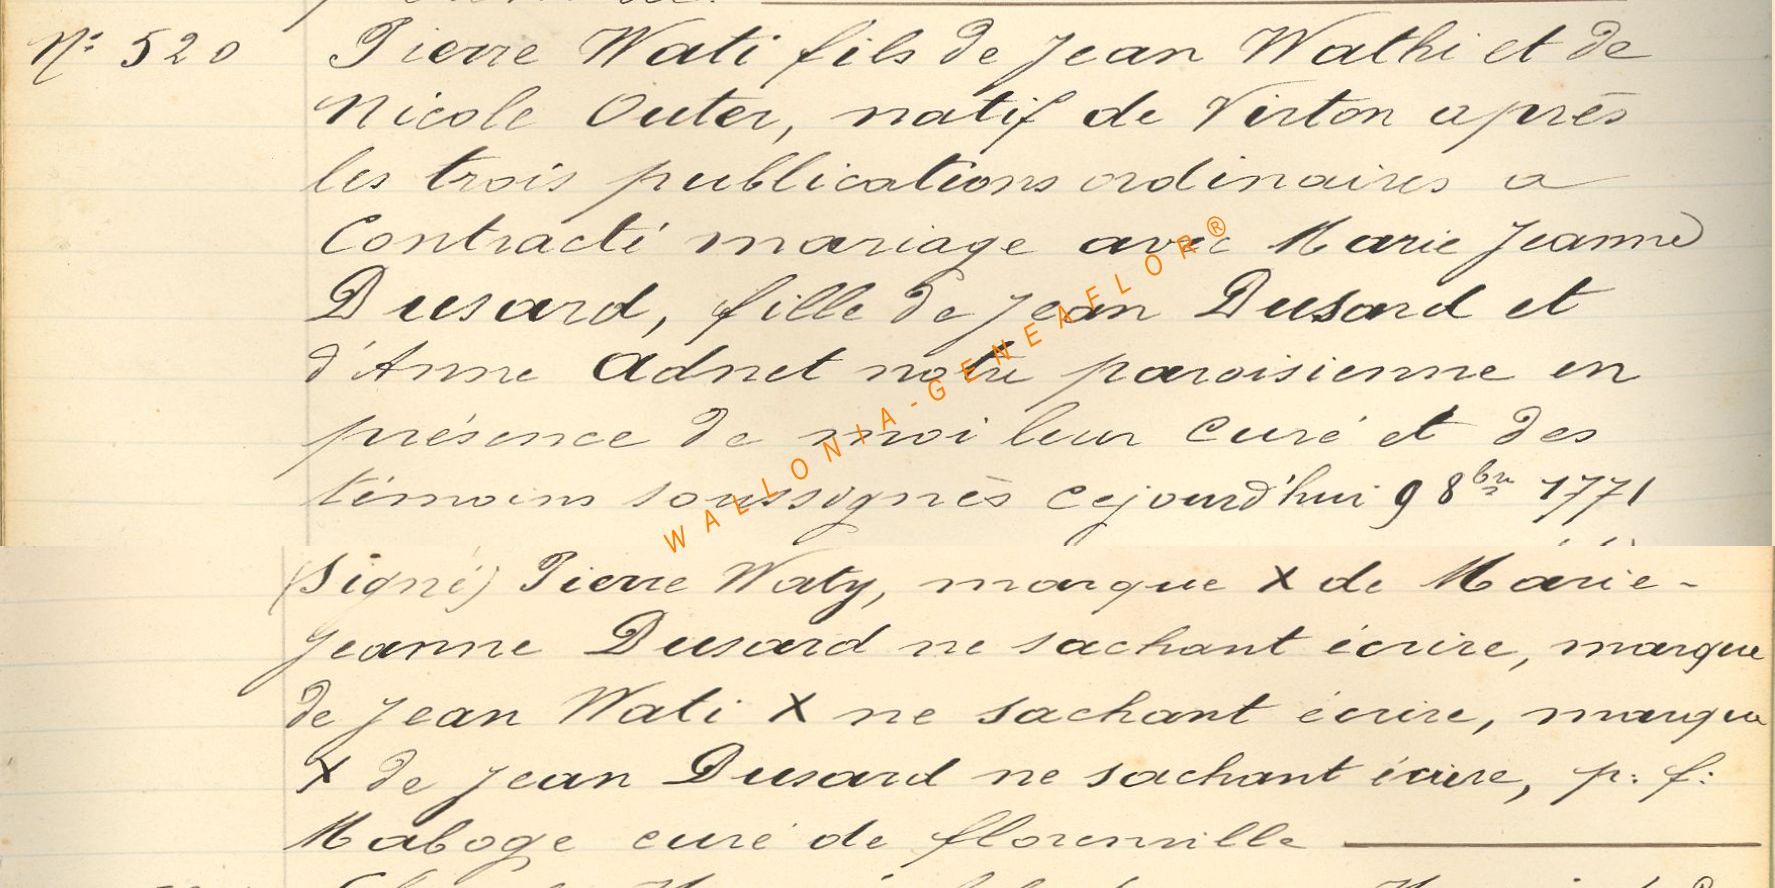 N° 520 Pierre Wati fils de Jean Wathi et de
Nicole Outer, natif de Virton après
les trois publications ordinaires a
Contracté mariage avec Marie Jeanne
Dusard, fille de Jean Dusard et
d'Anne Adnet notre paroisienne en
présence de moi leur Curé et des
témoins soussignés cejourd'hui 9 8bre 1771
(Signé) Pierre Waty, marque X de Marie-
Jeanne Dusard ne sachant écrire, marque
de Jean Wati X ne sachant écrire, marque
X de Jean Dusard ne sachant écrire, p: f:
Maboge curé de florenville
WALLONIA-GENEAFLOR®